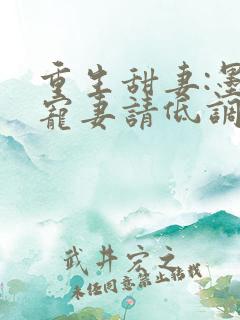 重生甜妻:墨
寵妻請低調
武井宏之
未經同意禁止轉載